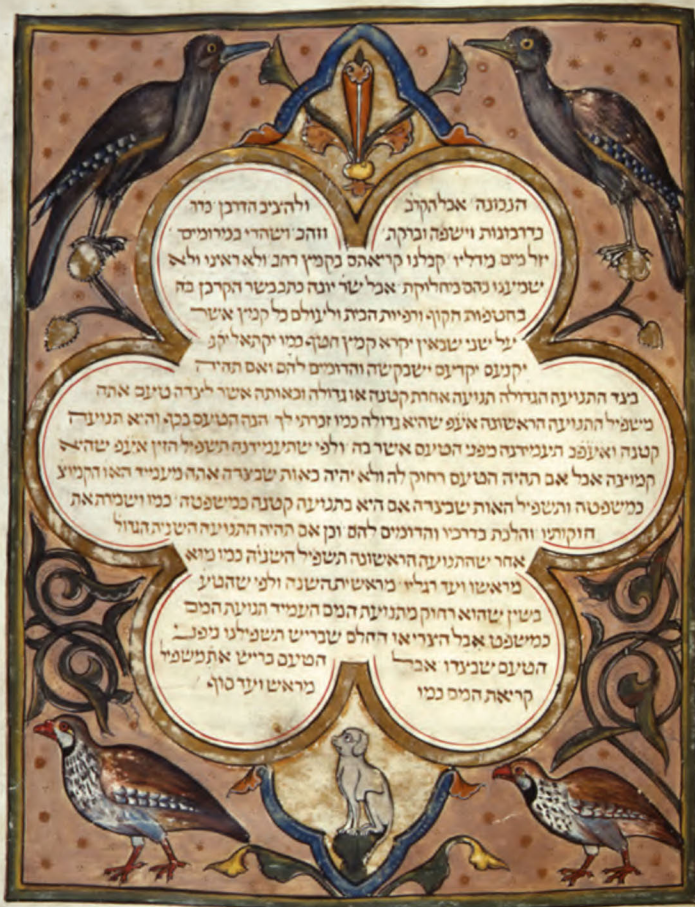 הנכונה אבל הקרב ולהציב הדרבן גדר
בדרבונות וישפה וברקת וזהב ושהדי במרומים
יזל מים מדליו קבלנו קריאתם בקמץ רחב ולא ראינו ולא
שמענו בהם מחלוקת אבל שר יונה כתב בשר הקרבן בה
בחטפות הקוף ורפיות הבית ולעולם כל קמץ אשר
על שני שבאין יקרא קמץ חטף כמו יקתאל יקנ
יקנעם יקדעם ישבקשה והדומים להם ואם תהיה
בצד התנועה הגדולה תנועה אחרת קטנה או גדולה ובאותה אשר לצדה טעם אתה
משפיל התנועה הראשונה אעפ שהיא גדולה כמו זכרתי לך הנה הטעם בכף והיא תנועה
קטנה ואעפכ תעמידנה מפני הטעם אשר בה ולפי שתעמידנה תשפיל הזין אעפ שהיא
קמוצה אבל אם תהיה הטעם רחוק לה ולא יהיה באות שבצדה אתה מעמיד האות הקמוצ
כמשפטה ותשפיל האות שבצדה אם היא בתנועה קטנה כמשפטה כמו ושמרת את
חוקותיו והלכת בדרכיו והדומים להם וכן אם תהיה התנועה השנית הגדול
אחר שהתנועה הראשונה תשפיל השניה כמו מוא
מראשו ועד רגליו מראשית השנה ולפי שהטע
בשין שהוא רחוק מתנועת המם העמיד תנועת המם
כמשפט אבל הצרי או החלם שבריש תשפילנו מפנ
הטעם שבצדו אבל הטעם בריש את משפיל
קריאת המם כמו מראש ועד סוף